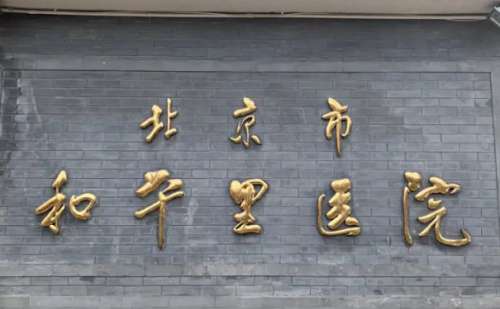 北京市
和平里医院